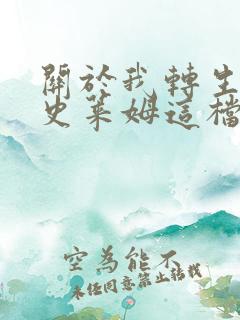 關於我轉生
史萊姆這檔
空為能不
未任同意禁止转载